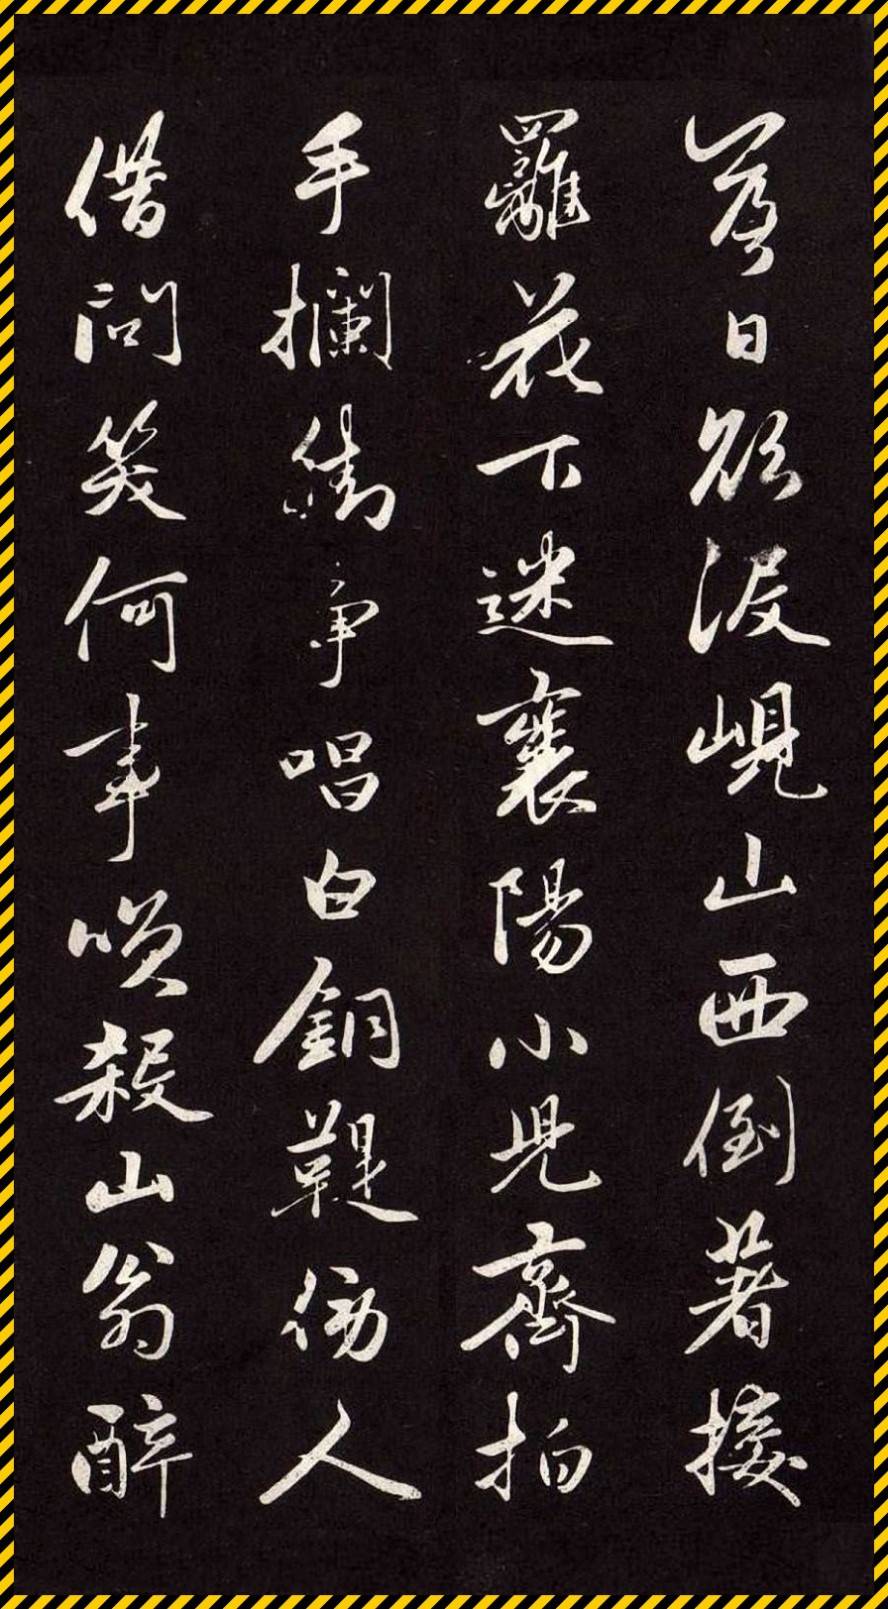 落日欲没峴山西倒著接
䍦花下迷襄陽小兒齊拍
手攔街争唱白銅鞮傍人
借問笑何事唉殺山翁醉